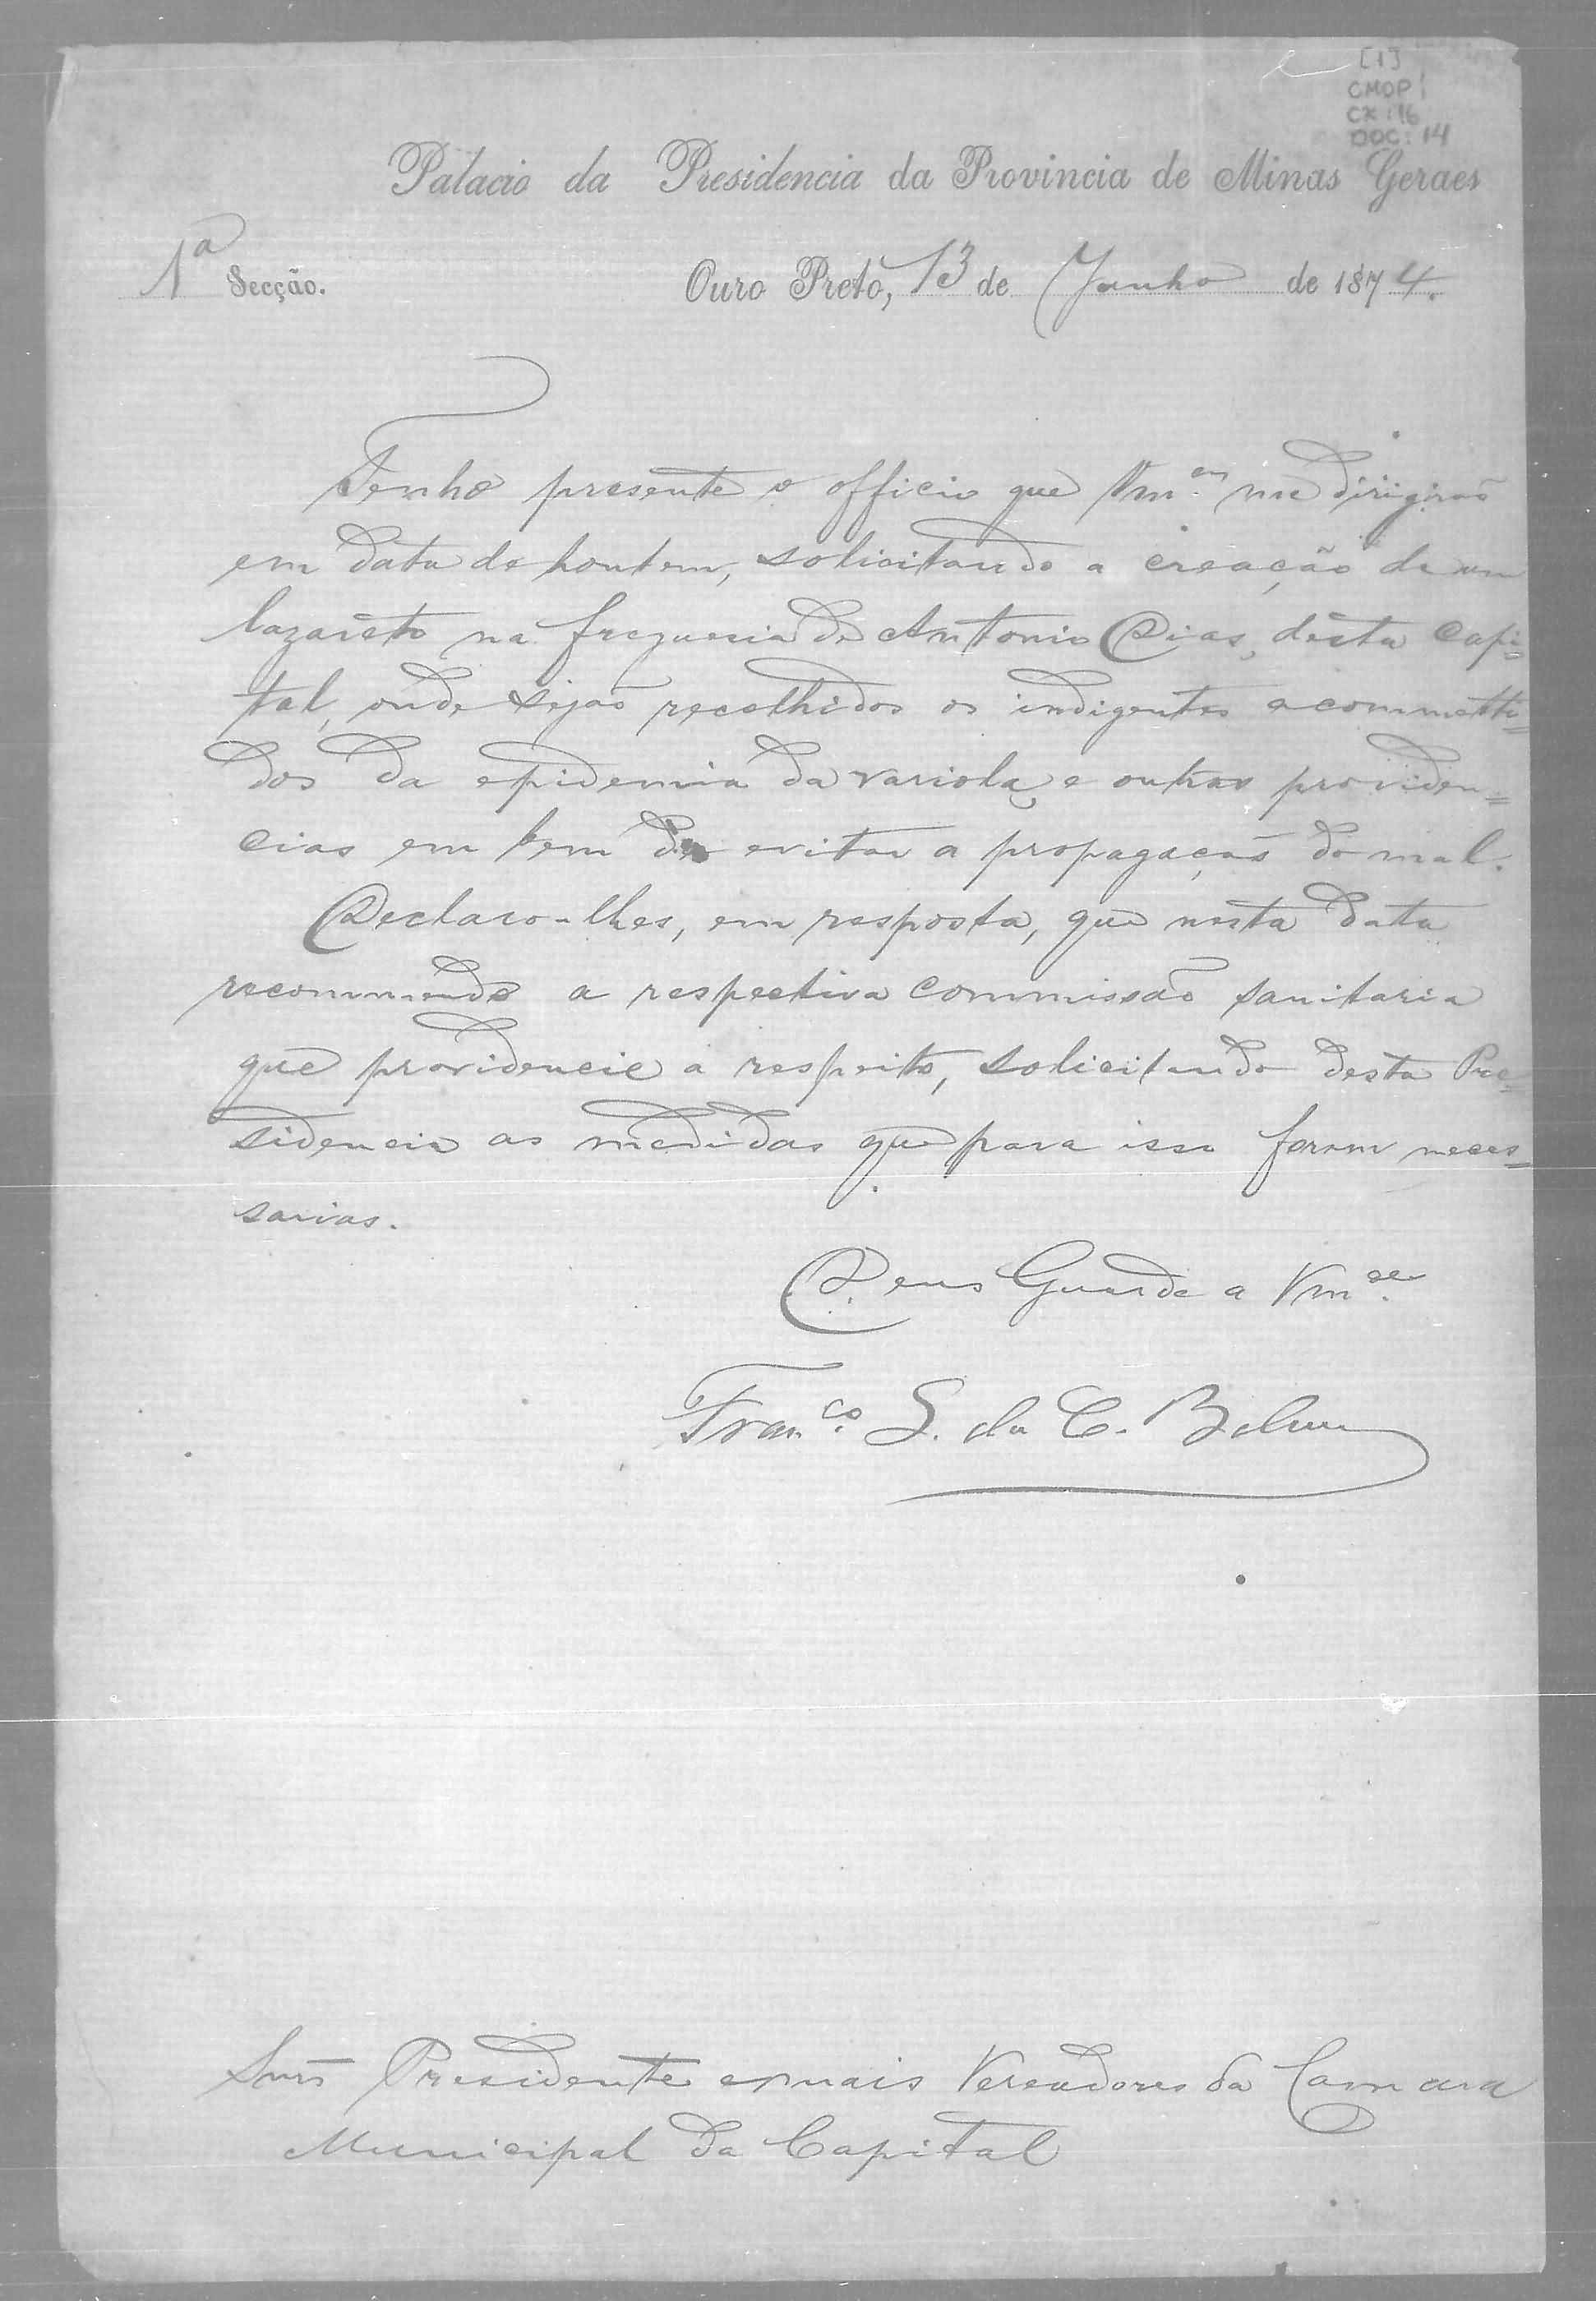 [1]
CMOP
CX: 16
DOC: 14
Palacio da Presidencia da Provincia de Minas Geraes
1ª Secção. Ouro Preto, 13 de Junho de 1874.
Tenho presente o officio que Vmces me dirigirão
em data de hontem, solicitando a creação de um
lazareto na freguesia de Antonio Dias, desta Capi=
tal, onde sejão recolhidos os indigentes acommetti=
dos da epidemia da variola, e outras providen=
cias em bem de evitar a propagação do mal.
Declaro-lhes, em resposta, que nesta data
recommendo a respectiva commissão sanitaria
que providencie a respeito, solicitando desta Pre=
sidencia as medidas que para isso forem neces=
sarias.
Deus Guarde a Vmces.
Fran.co S. da C. Belem
Snrs Presidente e mais Vereadores da Camara
Municipal da Capital